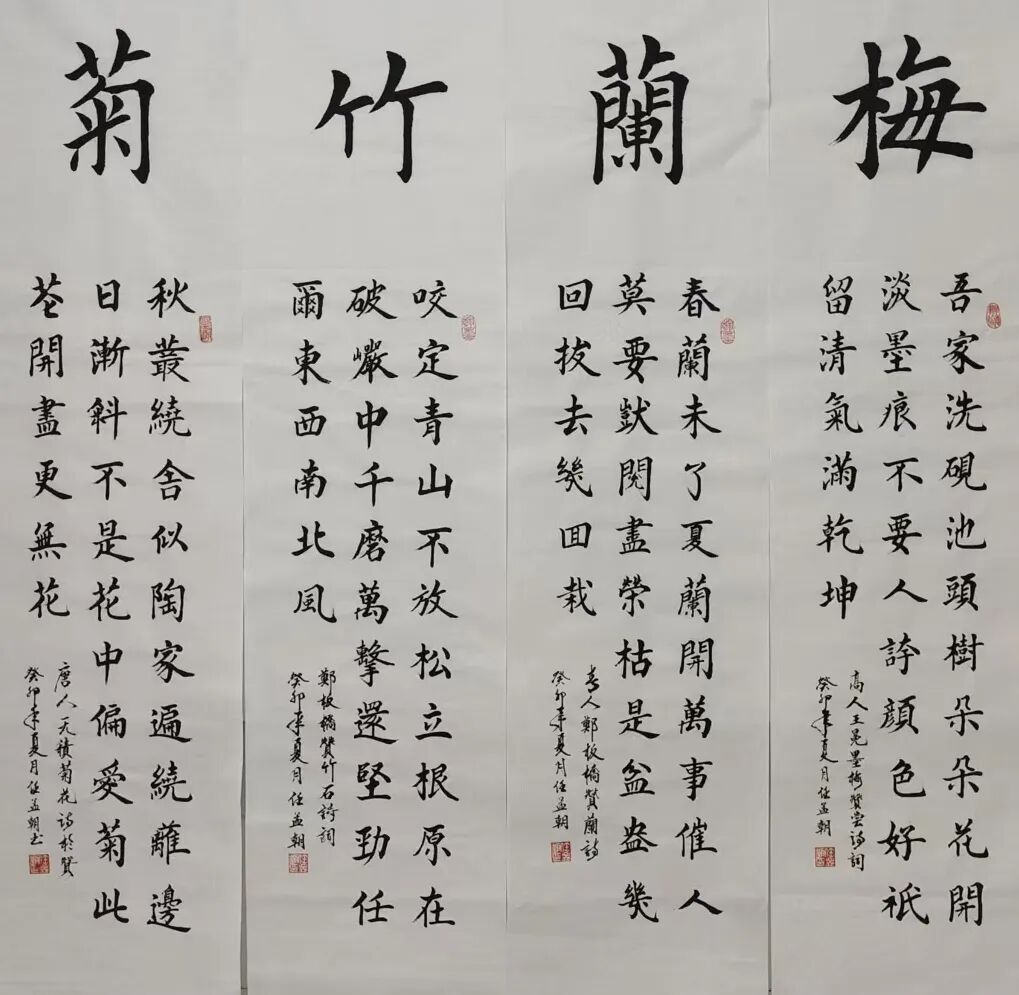 梅
吾家洗硯池頭樹朵朵花開
淡墨痕不要人誇顔色好祇
留清氣滿乾坤
高人王冕墨梅贊雲詩詞
癸卯年夏月任益朝
蘭
春蘭未了夏蘭開萬事催人
莫要獃閱盡榮枯是盆盎幾
回拔去幾囬栽
人鄭板橋贊蘭詩
癸卯年夏月任益朝
竹
咬定青山不放松立根原在
破巖中千磨萬擊還堅勁任
爾東西南北風
鄭板橋贊竹石詩詞
癸卯年夏月任益朝
菊
秋叢繞舍似陶家遍繞籬邊
日漸斜不是花中偏愛菊此
芲開盡更無花
唐人元稹菊花詩於贊
癸卯年夏月任益朝书